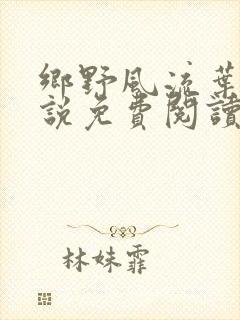 鄉野風流葉
説免費閱讀
林妹霏